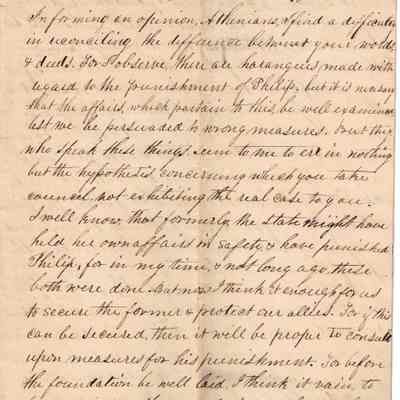 In forming an opinion, Athenians, I find a difficulty
in reconciling the difference between your words
& deeds. For I observe, there are harangues made with
regard to the punishment of Philip, but it is
that the affairs, which pertain to this, be well examined
lest we be persuaded to wrong measures. But they
who speak these things seem to me to err in nothing
but the hypothesis concerning which you take
counsel, not exhibiting the real case to you.
I well know, that formerly the state might have
held her own affairs in safety, & have punished
Philip, for in my time, & not long ago, these
both were done. But now I think it enough for us
to secure the former & protect our allies. For if this
can be secured, then it will be proper to consult
upon measures for his punishment. For before
the foundation be well laid, I think it vain to